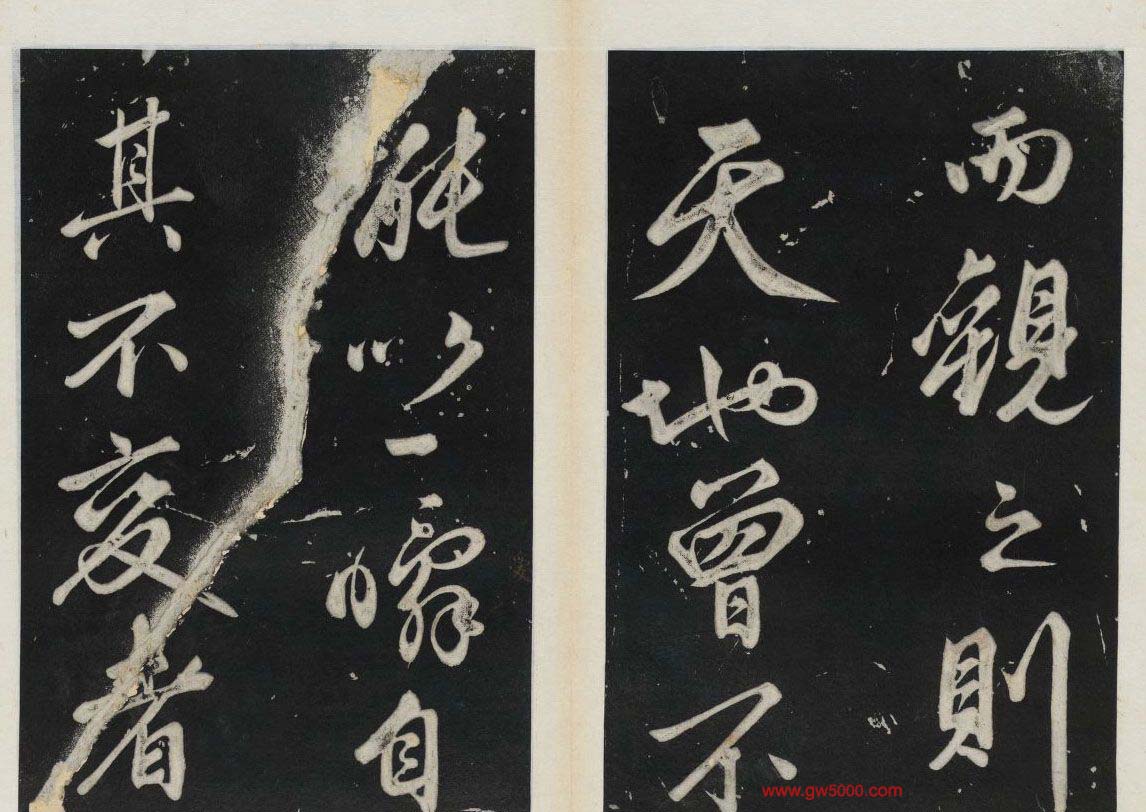 而觀之則
天地曾不
能以一瞬自
其不變者
www.gw5000.com